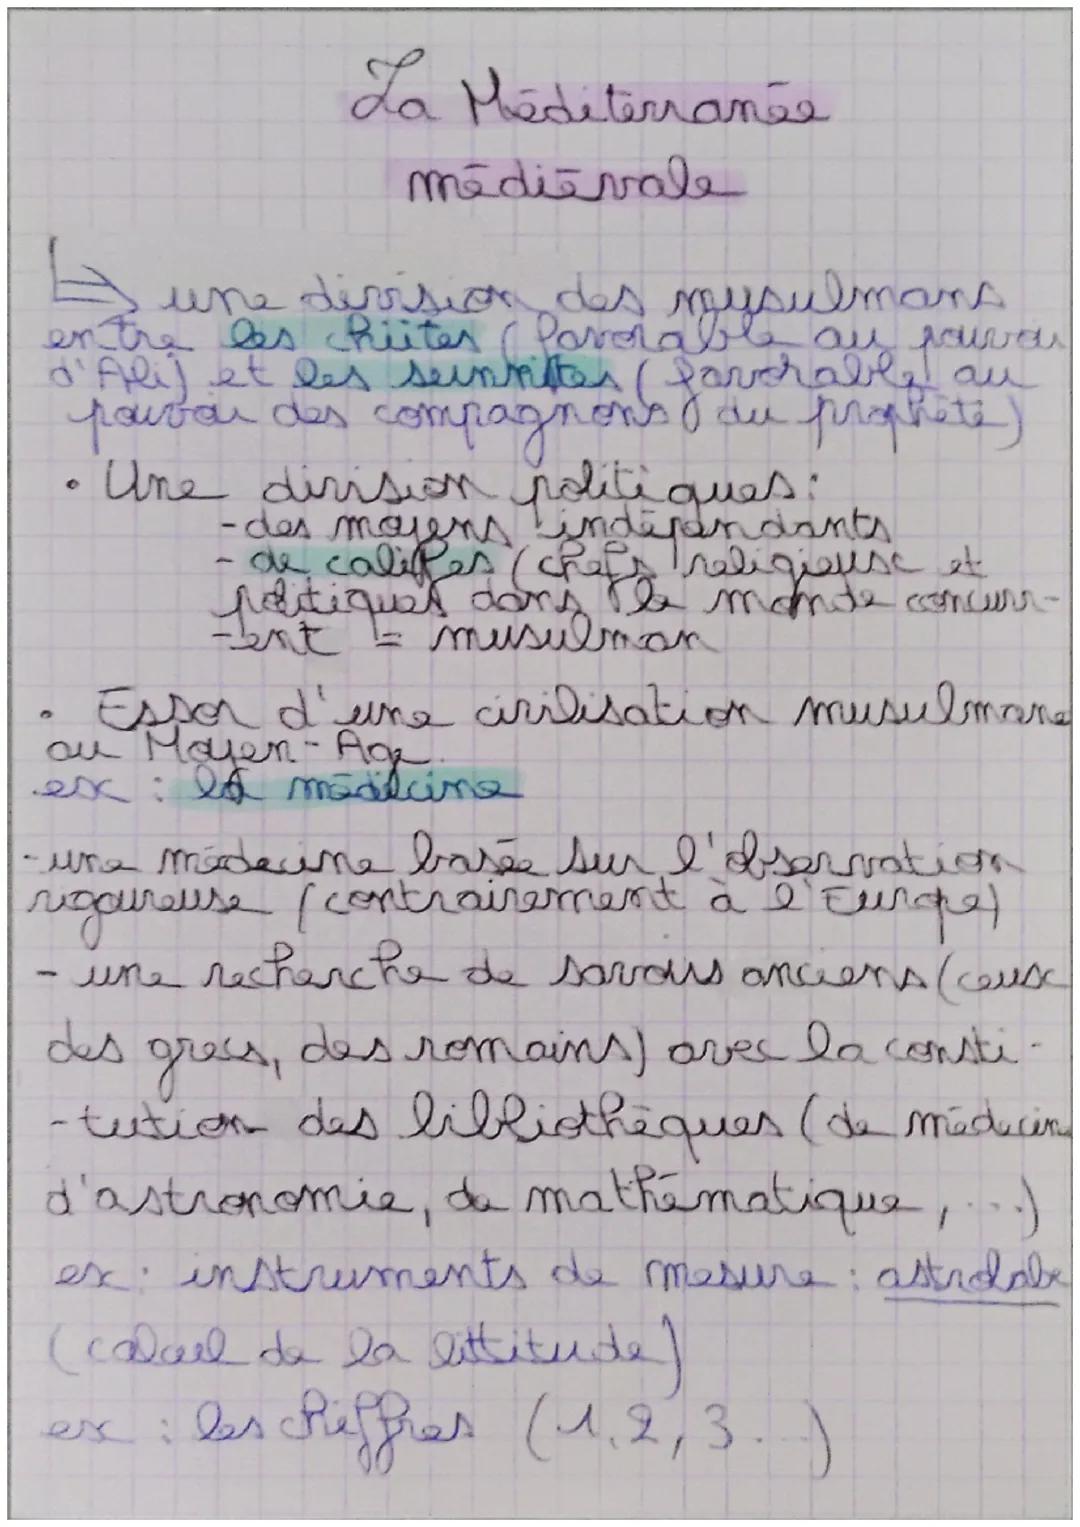 La Méditerranée
médiévale
une division des musulmans
entre les chiites (favorable au pouvoir
d'Ali) et les sunnites (favorable au
pouvoir des compagnons du prophète)
• Une division politiques :
- des moyens indépendants
- de califes (chefs religieux et
politiques dans le monde concurr-
-ent = musulman
• Essor d'une civilisation musulmane
au Moyen-Age.
ex : la médecine
- une médecine basée sur l'observation
rigoureuse (contrairement à l'Europe)
- une recherche de savoirs anciens (ceux
des grecs, des romains) avec la consti-
-tution des bibliothèques (de médecine
d'astronomie, de mathématique, ...)
ex : instruments de mesure : astrolabe
(calcul de la littitude)
ex : les chiffres (1, 2, 3...)